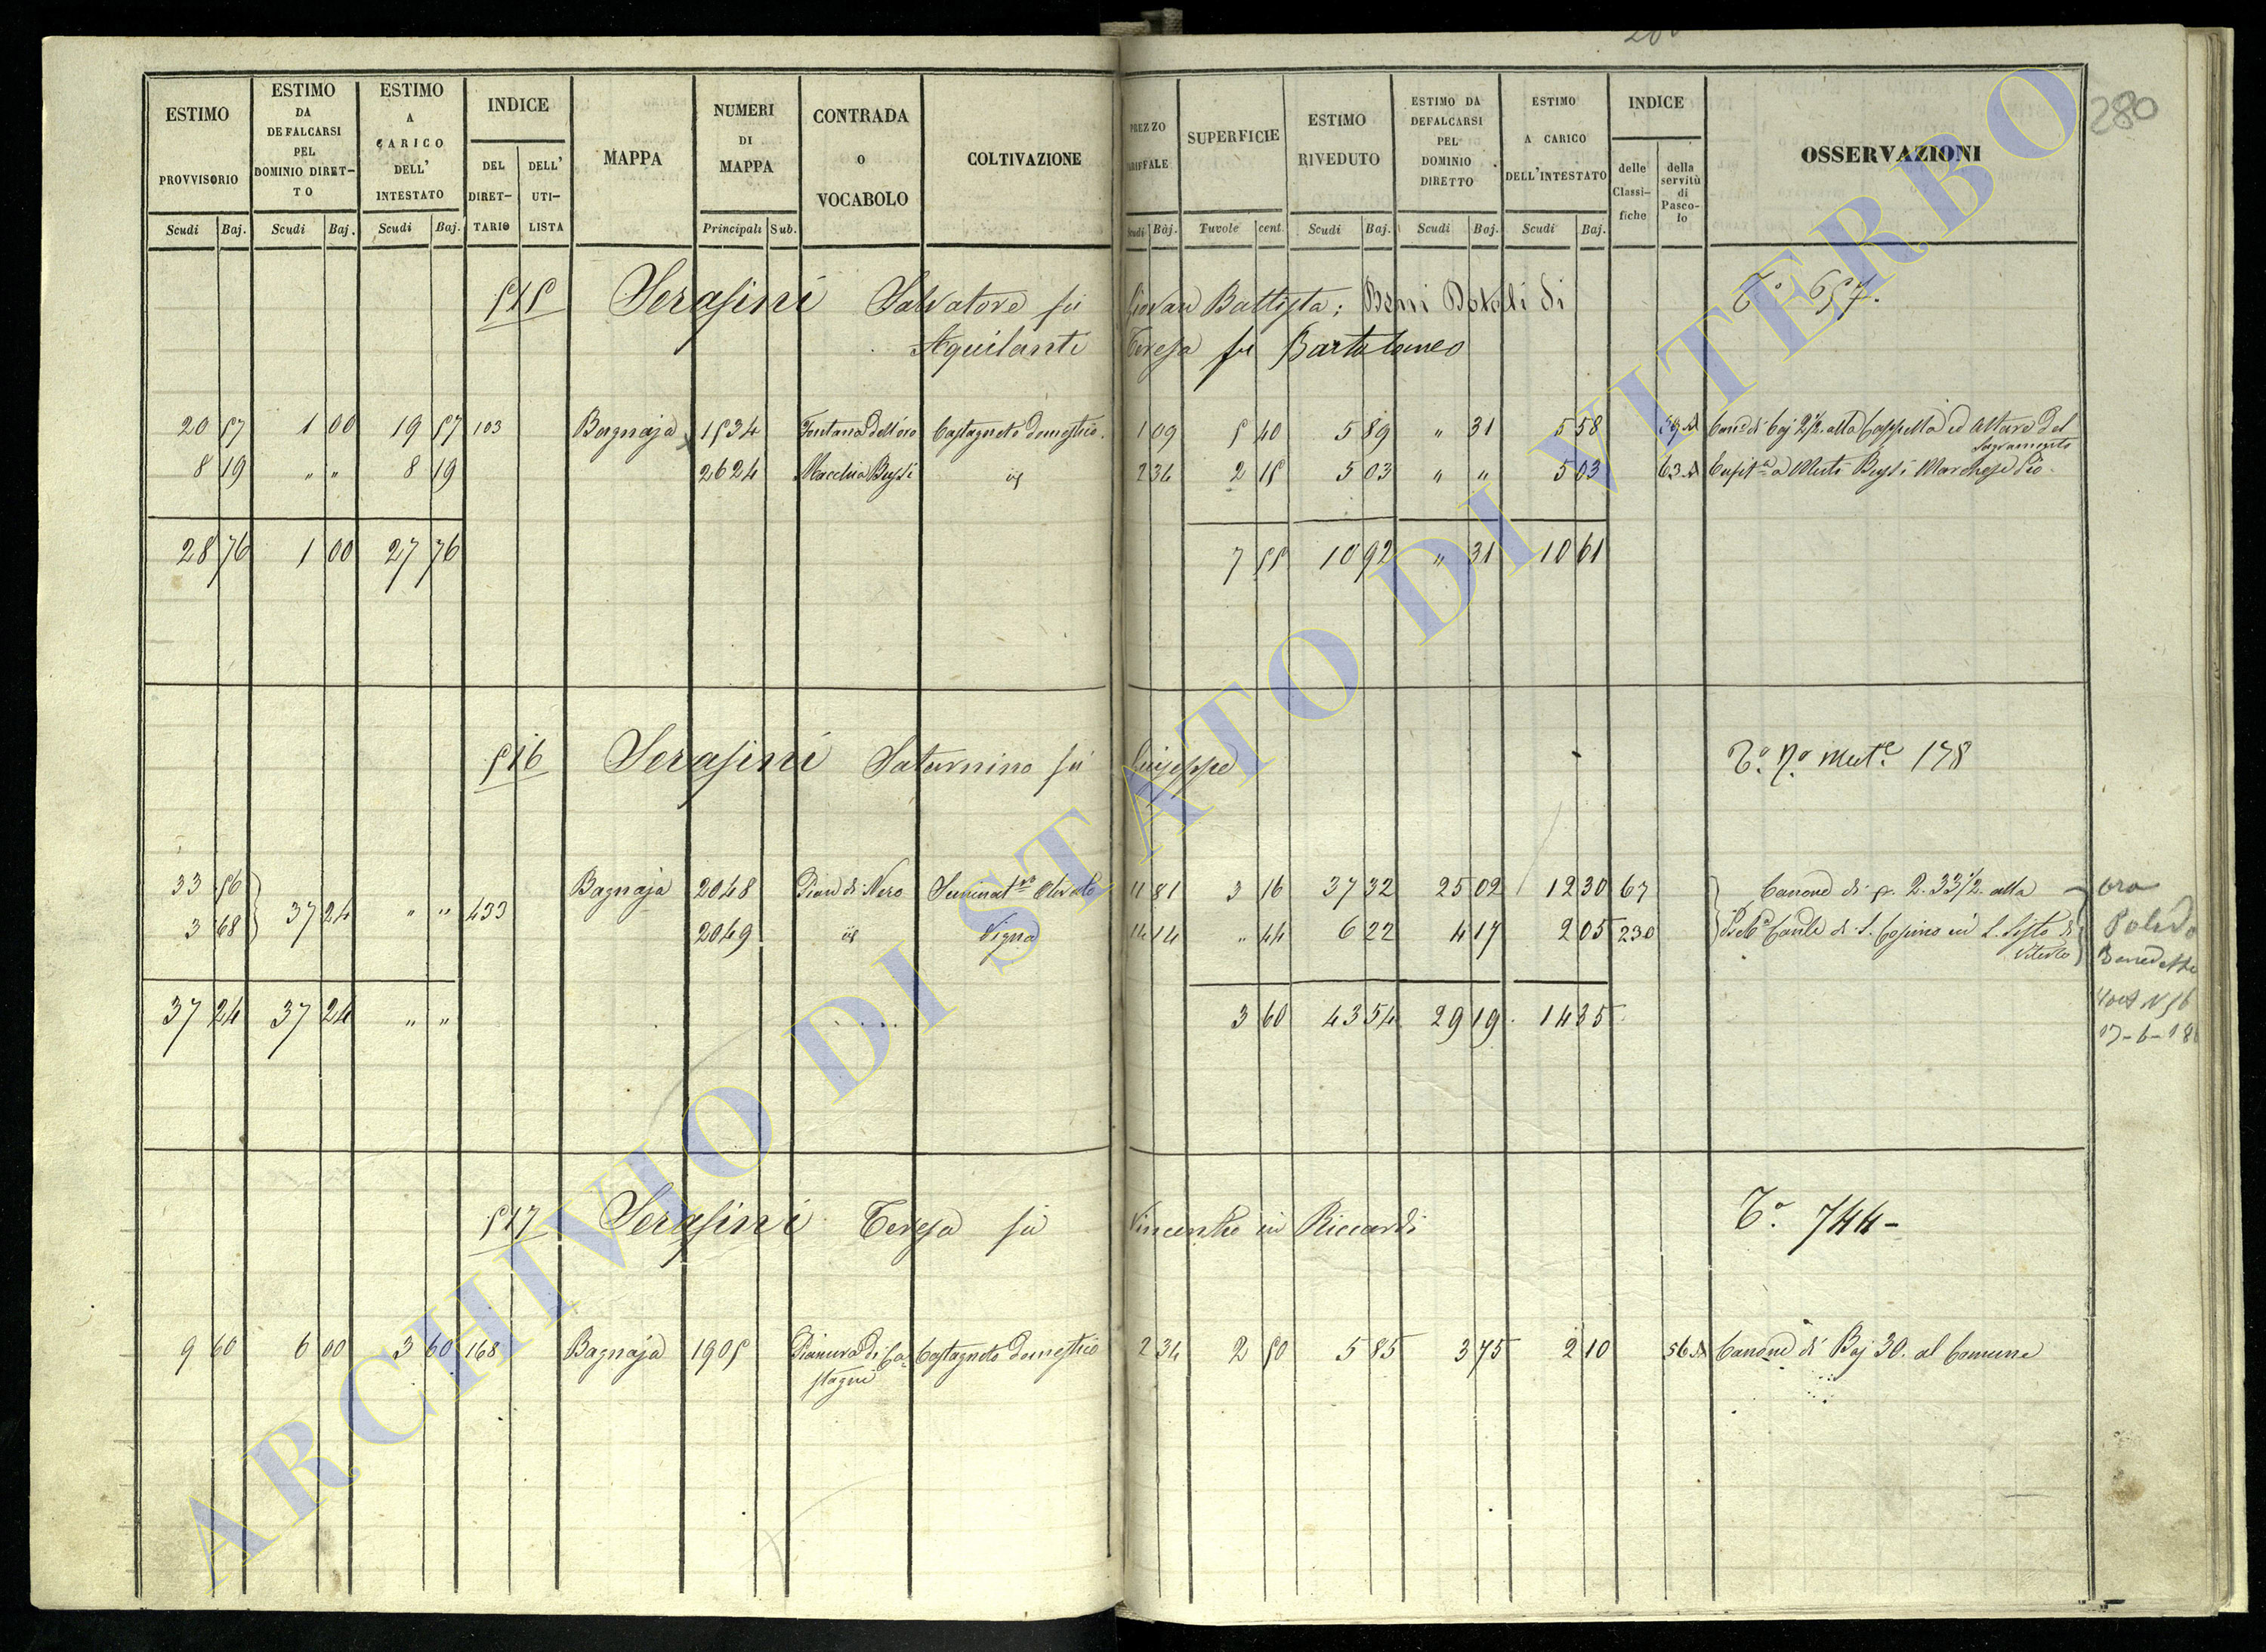 280
ESTIMO PROVVISORIO | ESTIMO DA DEFALCARSI PEL DOMINIO DIRETTO | ESTIMO A CARICO DELL' INTESTATO | INDICE DEL DIRETTARIO | DELL' UTILISTA | MAPPA | NUMERI DI MAPPA | CONTRADA O VOCABOLO | COLTIVAZIONE | PREZZO TARIFFALE | SUPERFICIE | ESTIMO RIVEDUTO | ESTIMO DA DEFALCARSI PEL DOMINIO DIRETTO | ESTIMO A CARICO DELL'INTESTATO | INDICE delle Classifiche | della servitù di Pascolo | OSSERVAZIONI
Scudi Baj. | Scudi Baj. | Scudi Baj. | Principali Sub. | Scudi Baj. | Tavole cent. | Scudi Baj. | Scudi Baj. | Scudi Baj.
515 Serafini Salvatore fu Giovan Battista; Beni Dotali di T.o 657.
Aquilanti Teresa fu Bartolomeo
20 57 1 00 19 57 103 Bagnaja 1534 Fontana dell'oro Castagneto domestico. 1 09 5 40 5 89 " 31 5 58 59.A Can.e di baj 2 1/2 alla Cappella ed Altare del Sagramento
8 19 " " 8 19 2624 Macchia Bussi id 2 34 2 15 5 03 " " 5 03 63.A a Muti Bussi Marchese Pio.
28 76 1 00 27 76 7 55 10 92 " 31 10 61
516 Serafini Saturnino fu Giuseppe T.o N.o Mut.e 178
33 56 37 24 " " 433 Bagnaja 2048 Pian di Nero Seminat.vo Olivato 11 81 3 16 37 32 25 02 12 30 67 Canone di p. 2. 33 1/2. alla
3 68 2049 id Vigna 14 14 " 44 6 22 4 17 2 05 230 di S. Cosimo in S. Sisto di Viterbo
ora
Benedetto
37 24 37 24 " " 3 60 43 54 29 19 14 35
17-6-18
517 Serafini Teresa fu Vincenzo in Riccardi T.o 744-
9 60 6 00 3 60 168 Bagnaja 1905 Pianura di Castagne Castagneto domestico 2 34 2 50 5 85 3 75 2 10 56.A Canone di Baj 30. al Comune
ARCHIVIO DI STATO DI VITERBO